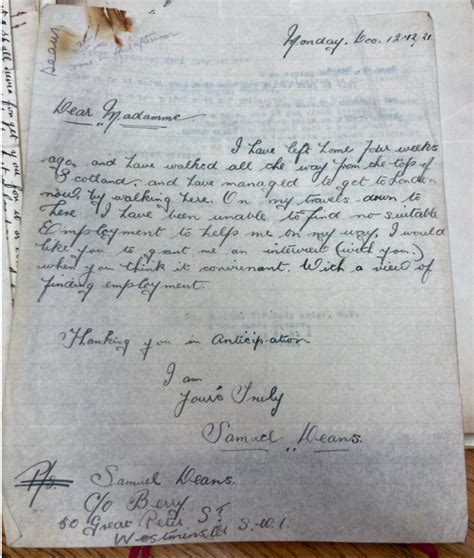 Deans
Monday. Dec. 12.12.21.
Dear Madamme.
I have left home four weeks
ago, and have walked all the way from the top of
Scotland, and have managed to get to London
now, by walking here. On my travels down to
here I have been unable to find no suitable
Employment to help me on my way, I would
like you to grant me an interview (with you.)
when you think it convienant. With a view of
finding employment.
Thanking you in Anticipation
I am
Your's Truly
Samuel Deans.
P/s. Samuel Deans.
C/o Berry
50 Great Peter St
Westminster S.W.1.